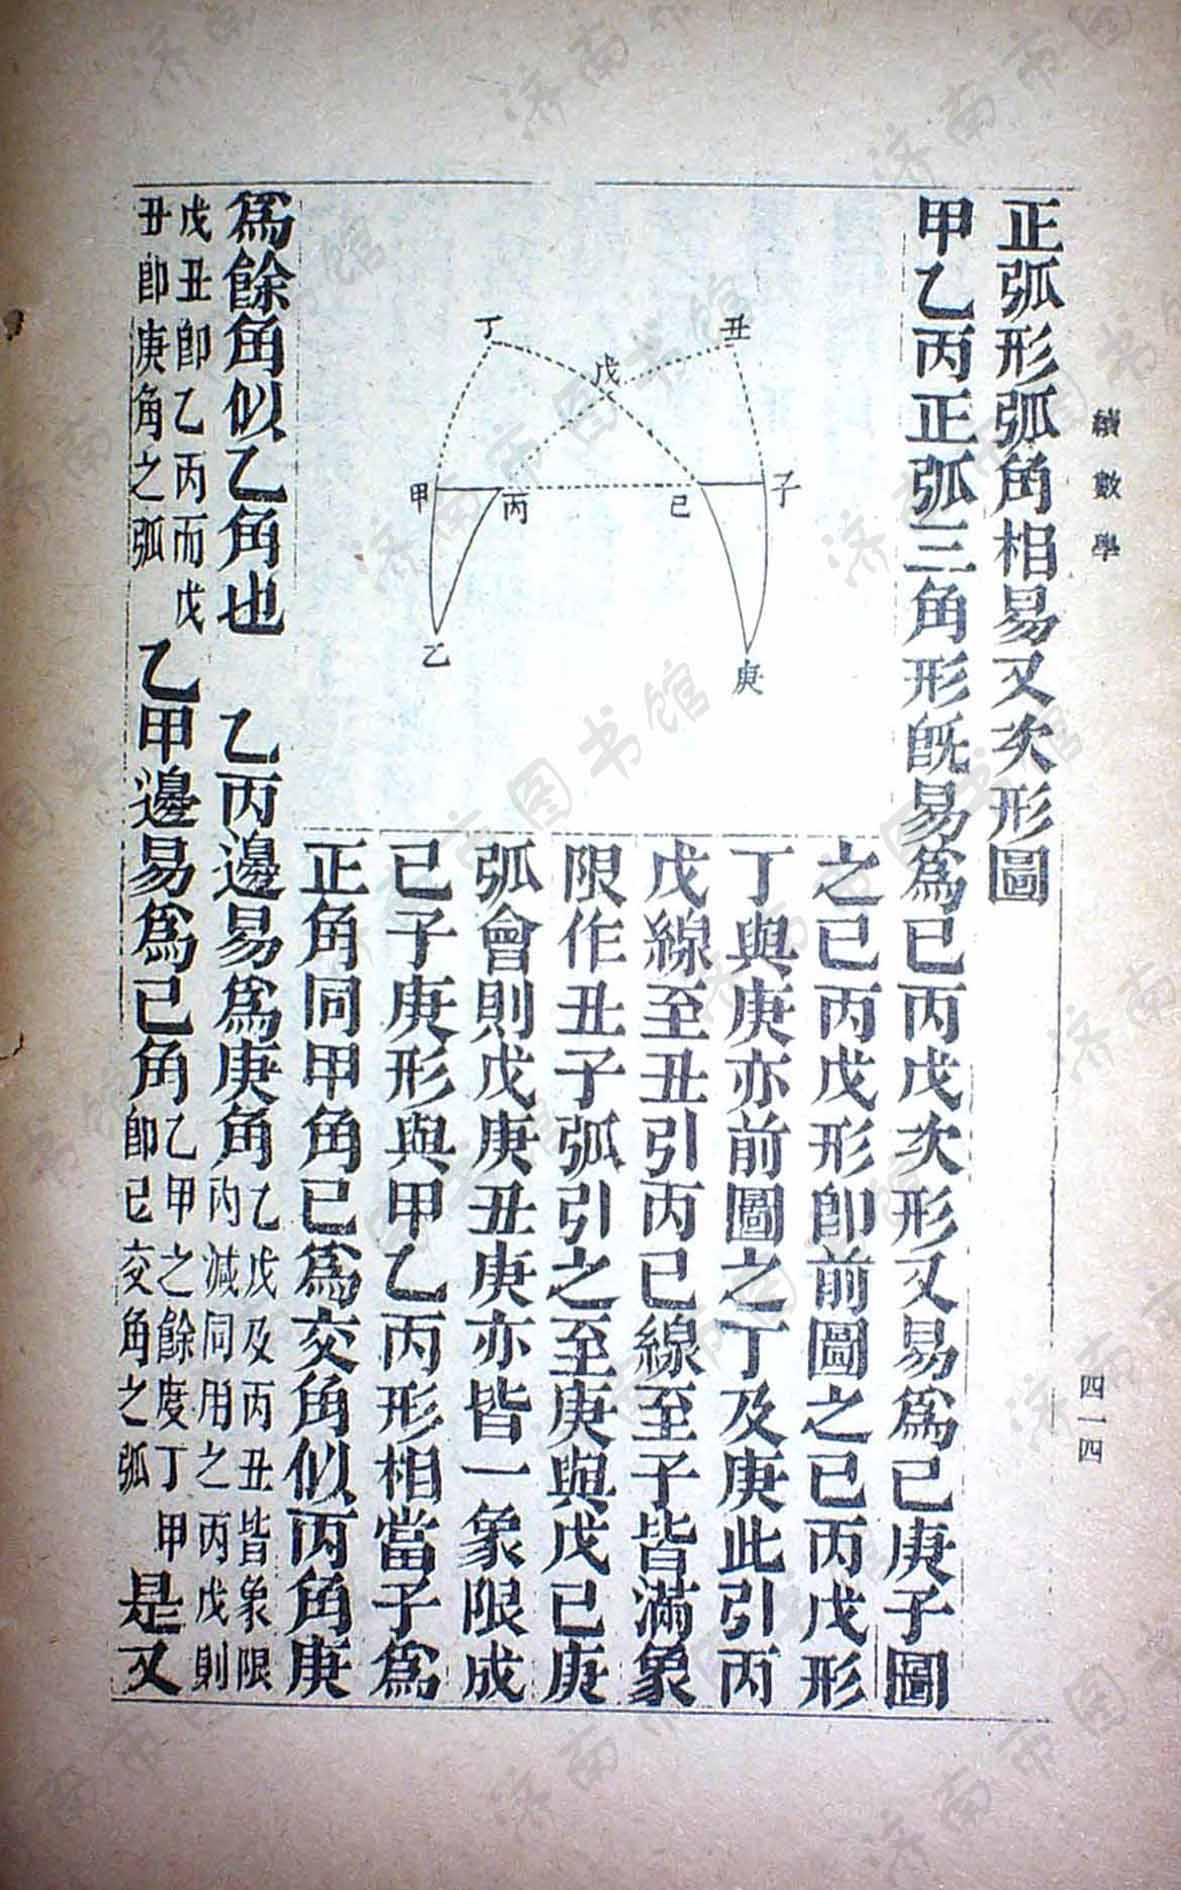 續數學
四一四
正弧形弧角相易又次形圖
甲乙丙正弧三角形旣易爲已丙戊次形又易爲已庚子圖
之已丙戊形卽前圖之已丙戊形
丁與庚亦前圖之丁及庚此引丙
戊線至丑引丙已線至子皆滿象
限作丑子弧引之至庚與戊已庚
弧會則戊庚丑庚亦皆一象限成
已子庚形與甲乙丙形相當子爲
正角同甲角已爲交角似丙角庚
丁
丑
戊
甲
丙
已
子
乙
庚
爲餘角似乙角也
乙丙邊易爲庚角
乙戊及丙丑皆象限
內減同用之丙戊則
戊丑卽乙丙而戊
丑卽庚角之弧
乙甲邊易爲已角
乙甲之餘度丁甲
卽已交角之弧
是又